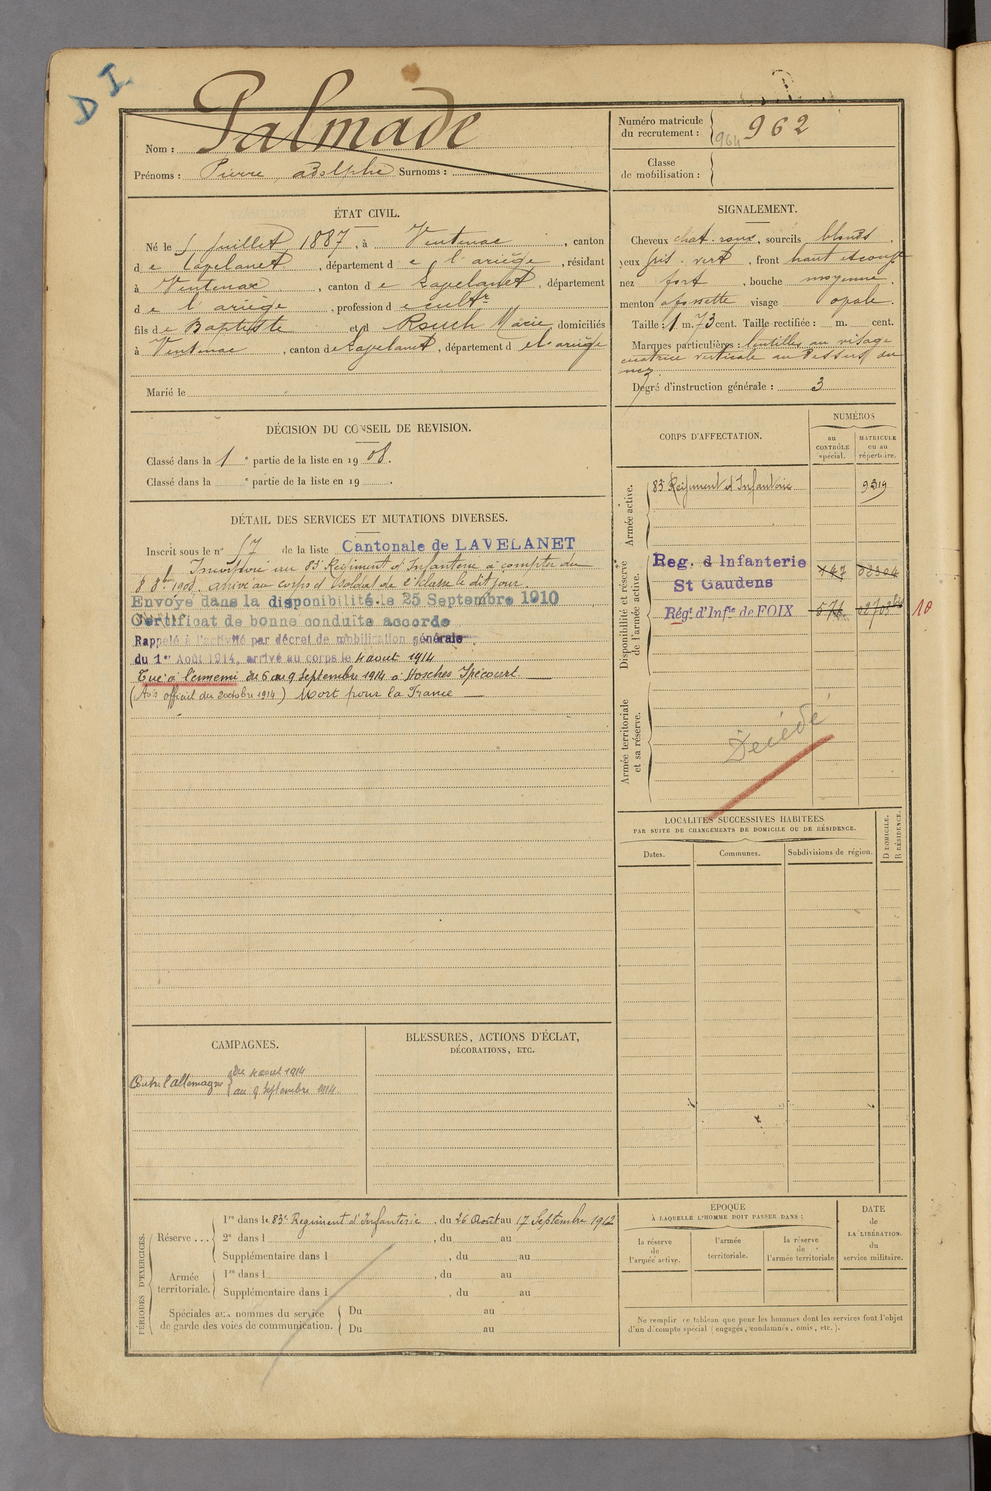 D I.
Nom : Palmade
Prénoms : Pierre Adolphe Surnoms :
Numéro matricule du recrutement : 964 962
Classe de mobilisation :
ÉTAT CIVIL.
Né le 5 Juillet 1887, à Ventenac, canton
de Lavelanet, département de l'ariège, résidant
à Ventenac, canton de Lavelanet, département
de l'ariège, profession de cultr
fils de Baptiste et d Rouch Marie, domiciliés
à Ventenac, canton de Lavelanet, département de l'ariège
Marié le
SIGNALEMENT.
Cheveux chat. roux, sourcils blonds,
yeux gris. vert, front haut
nez fort, bouche moyenne,
menton à fossette visage ovale.
Taille : 1 m. 73 cent. Taille rectifiée : m. cent.
Marques particulières : lentilles au visage
cicatrice verticale au dessus du
nez
Degré d'instruction générale : 3
DÉCISION DU CONSEIL DE REVISION.
Classé dans la 1e partie de la liste en 1908.
Classé dans la e partie de la liste en 19 .
DÉTAIL DES SERVICES ET MUTATIONS DIVERSES.
Inscrit sous le n° 57 de la liste Cantonale de LAVELANET
Incorporé au 83e Régiment d'Infanterie à compter du
8 8bre 1908. arrivé au corps et soldat de 2e classe le dit jour.
Envoyé dans la disponibilité le 25 Septembre 1910
Certificat de bonne conduite accordé
Rappelé à l'activité par décret de mobilisation générale
du 1er Août 1914, arrivé au corps le 4 aout 1914
Tué à l'ennemi du 6 au 9 septembre 1914 à
(Avis officiel du 2 octobre 1914) Mort pour la France
CORPS D'AFFECTATION.
NUMÉROS
au CONTRÔLE spécial.
MATRICULE ou au répertoire.
Armée active.
83e Régiment d'Infanterie
Disponibilité et réserve de l'armée active.
Reg. d Infanterie
St Gaudens
Régt d'Infie de FOIX
10
Armée territoriale et sa réserve.
Décédé
LOCALITÉS SUCCESSIVES HABITÉES
PAR SUITE DE CHANGEMENTS DE DOMICILE OU DE RÉSIDENCE.
Dates.
Communes.
Subdivisions de région.
D DOMICILE.
R RÉSIDENCE.
CAMPAGNES.
Contre l'allemagne
du 4 aout 1914
au 9 septembre 1914
BLESSURES, ACTIONS D'ÉCLAT,
DÉCORATIONS, ETC.
PÉRIODES D'EXERCICES.
Réserve ...
1re dans le 83e Régiment d'Infanterie, du 26 Août au 17 Septembre 1912
2e dans l , du au
Supplémentaire dans l , du au
Armée territoriale.
1re dans l , du au
Supplémentaire dans l , du au
Spéciales aux hommes du service
de garde des voies de communication.
Du au
Du au
ÉPOQUE
À LAQUELLE L'HOMME DOIT PASSER DANS :
la réserve de l'armée active.
l'armée territoriale.
la réserve de l'armée territoriale
DATE de LA LIBÉRATION. du service militaire.
Ne remplir ce tableau que pour les hommes dont les services font l'objet
d'un décompte spécial (engagés, condamnés, omis, etc.).